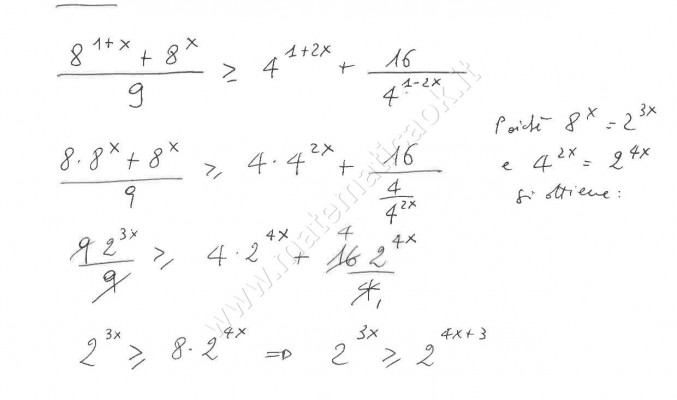 (8^{1+x} + 8^x)/9 ≥ 4^{1+2x} + 16/4^{1-2x}
(8·8^x + 8^x)/9 ≥ 4·4^{2x} + 16/(4/4^{2x})
Poiché 8^x = 2^{3x}
e 4^{2x} = 2^{4x}
si ottiene:
9 2^{3x}/9 ≥ 4·2^{4x} + 4 16 2^{4x}/4 1
2^{3x} ≥ 8·2^{4x} ⇒ 2^{3x} ≥ 2^{4x+3}
www.matematicaok.it